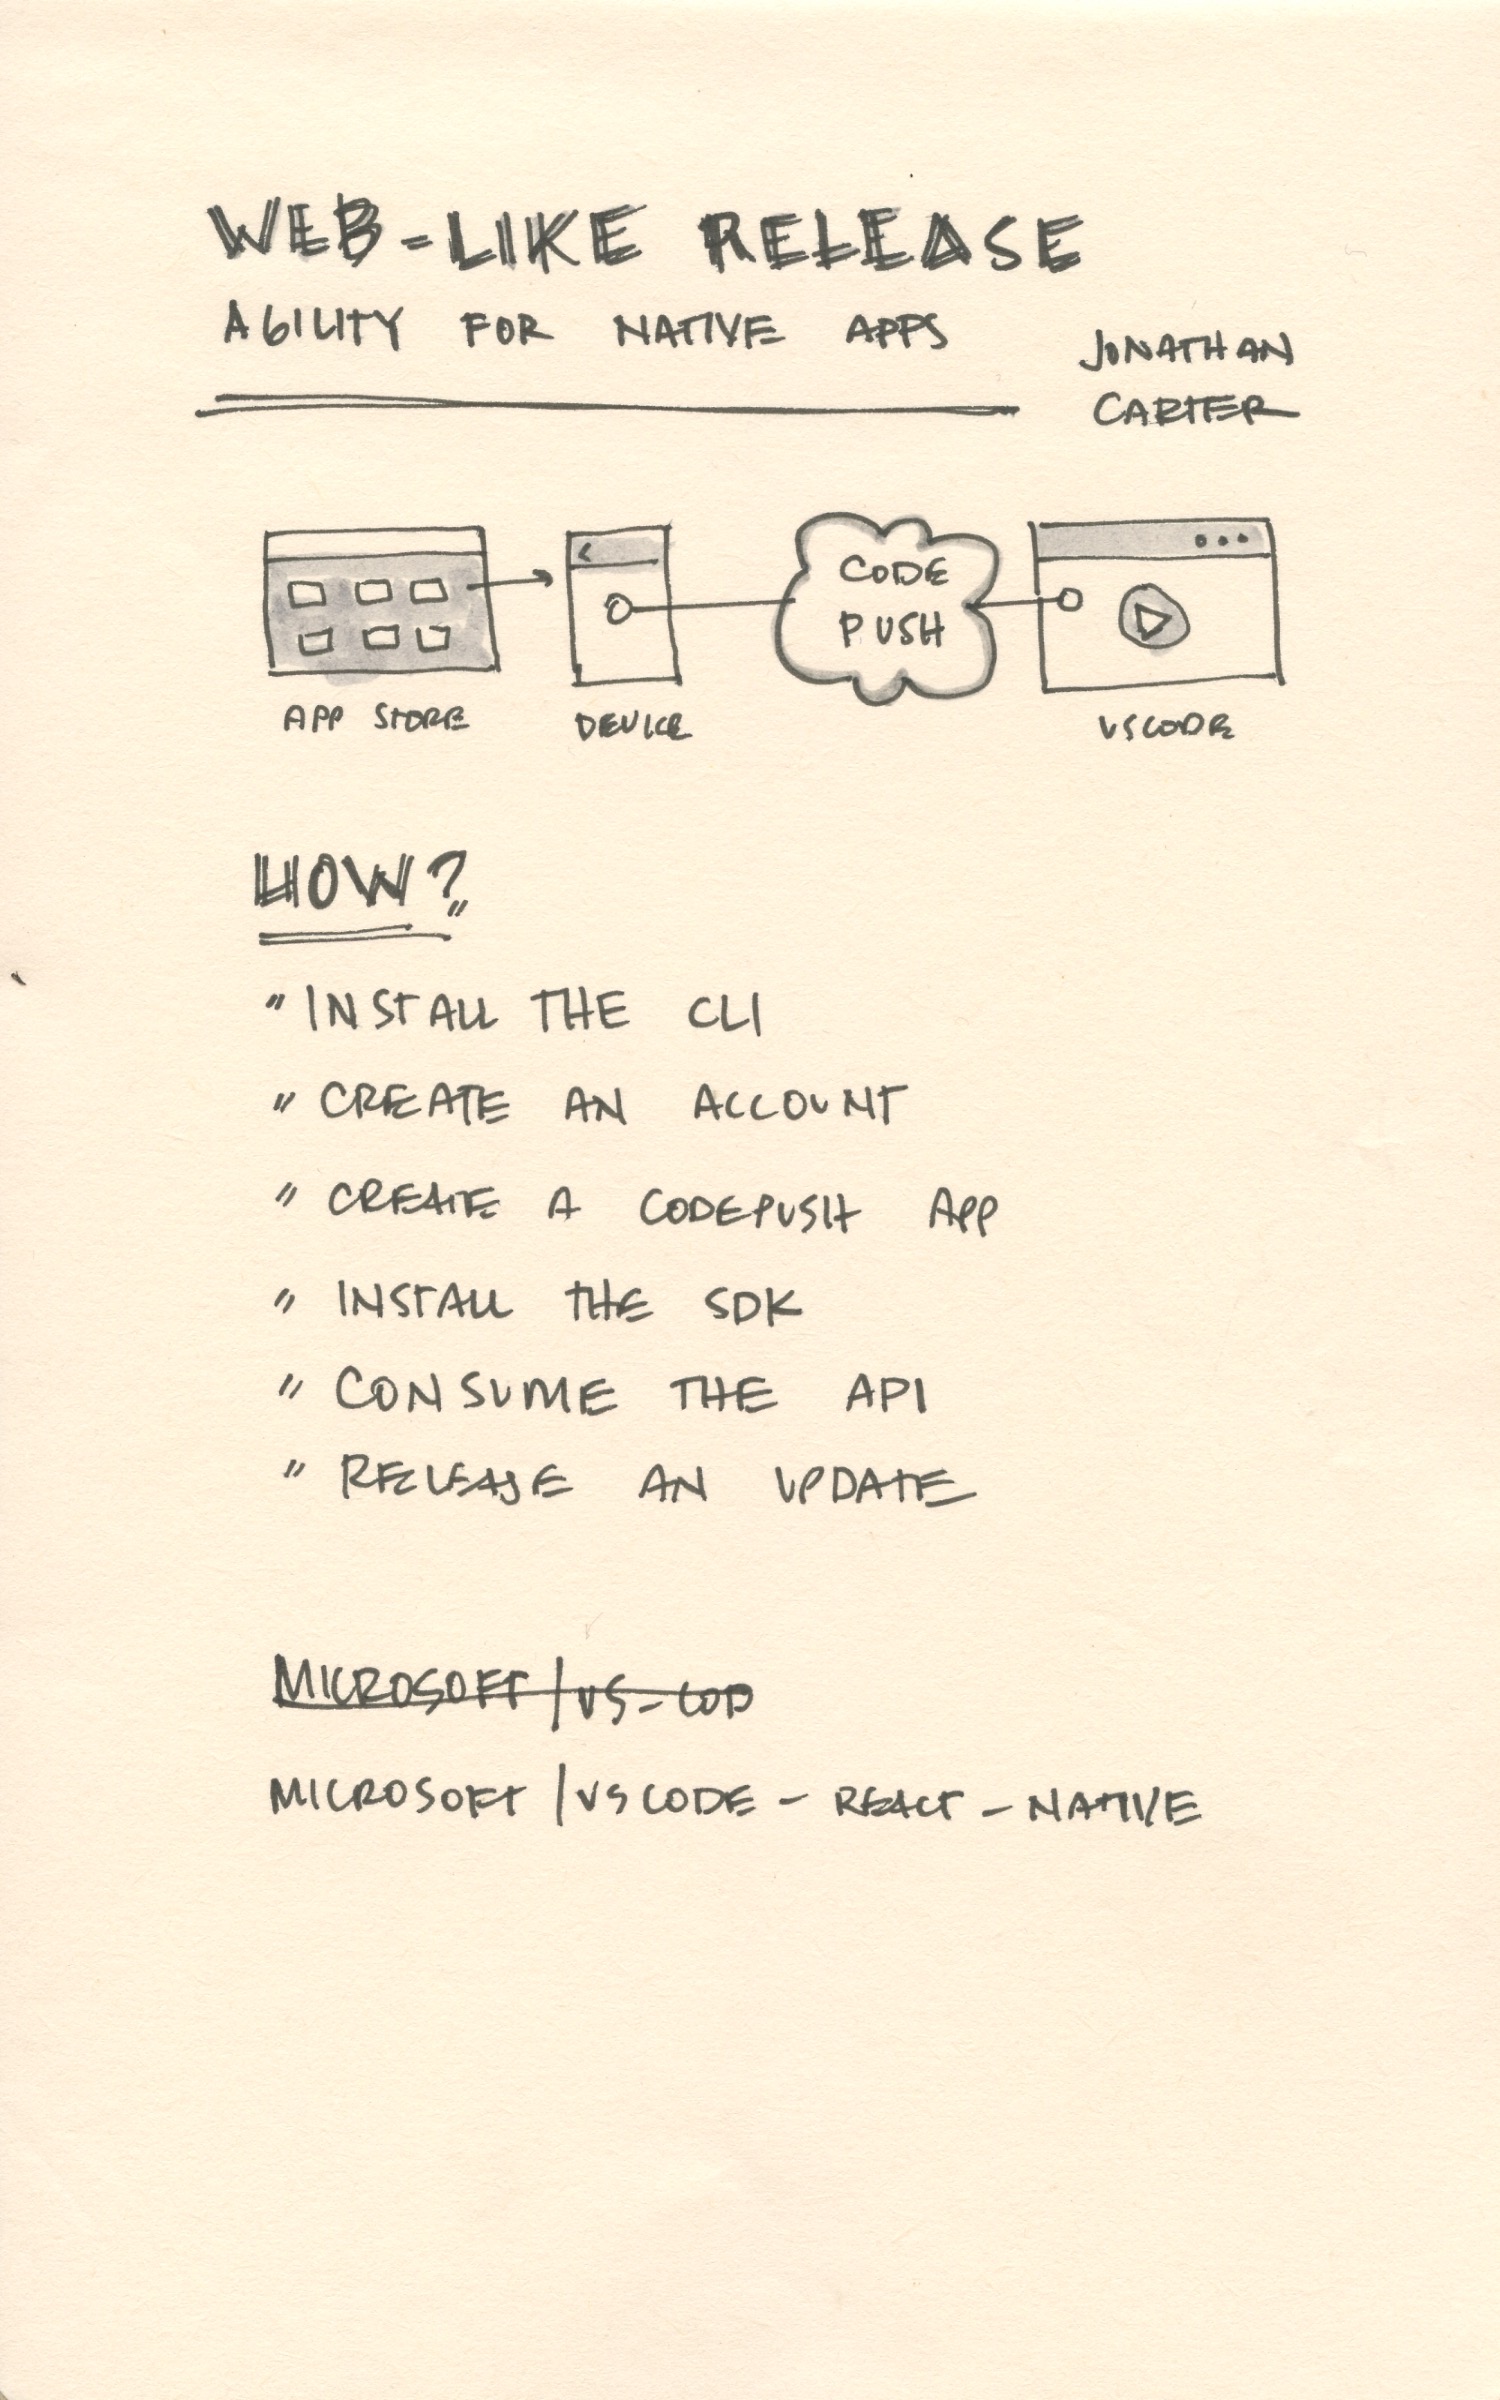 WEB-LIKE RELEASE
AGILITY FOR NATIVE APPS
JONATHAN
CARTER
CODE
PUSH
APP STORE
DEVICE
VSCODE
HOW?
" INSTALL THE CLI
" CREATE AN ACCOUNT
" CREATE A CODEPUSH APP
" INSTALL THE SDK
" CONSUME THE API
" RELEASE AN UPDATE
MICROSOFT/VS-COD
MICROSOFT/VSCODE-REACT-NATIVE